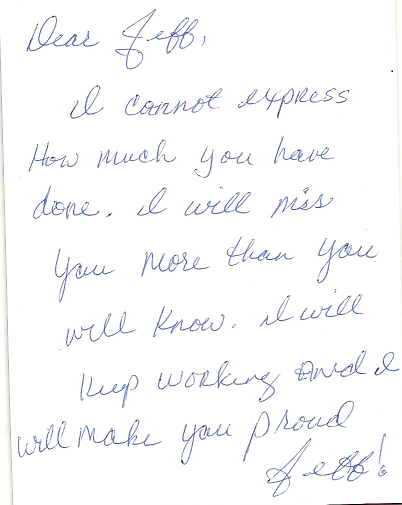 Dear Jeff,
I cannot express
How much you have
done. I will miss
you more than you
will know. I will
keep working and I
will make you proud
Jeff!